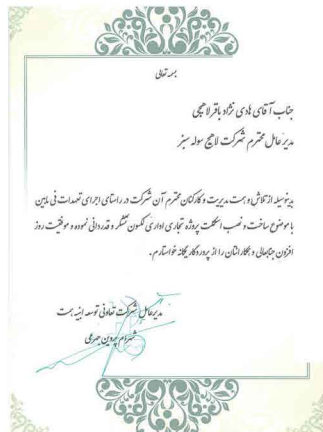 بسمه تعالی
جناب آقای هادی نژاد باقر لاهیجی
مدیر عامل محترم شرکت لاهیج سوله سبز
بدینوسیله از تلاش و همت مدیریت و کارکنان محترم آن شرکت در راستای اجرای تعهدات فی مابین
با موضوع ساخت و نصب اسکلت پروژه تجاری اداری لکسون تشکر و قدردانی نموده و موفقیت روز
افزون جنابعالی و همکارانتان را از پروردگار یگانه خواستارم.
مدیرعامل شرکت تعاونی توسعه ابنیه هست
شهرام پروین جهرمی